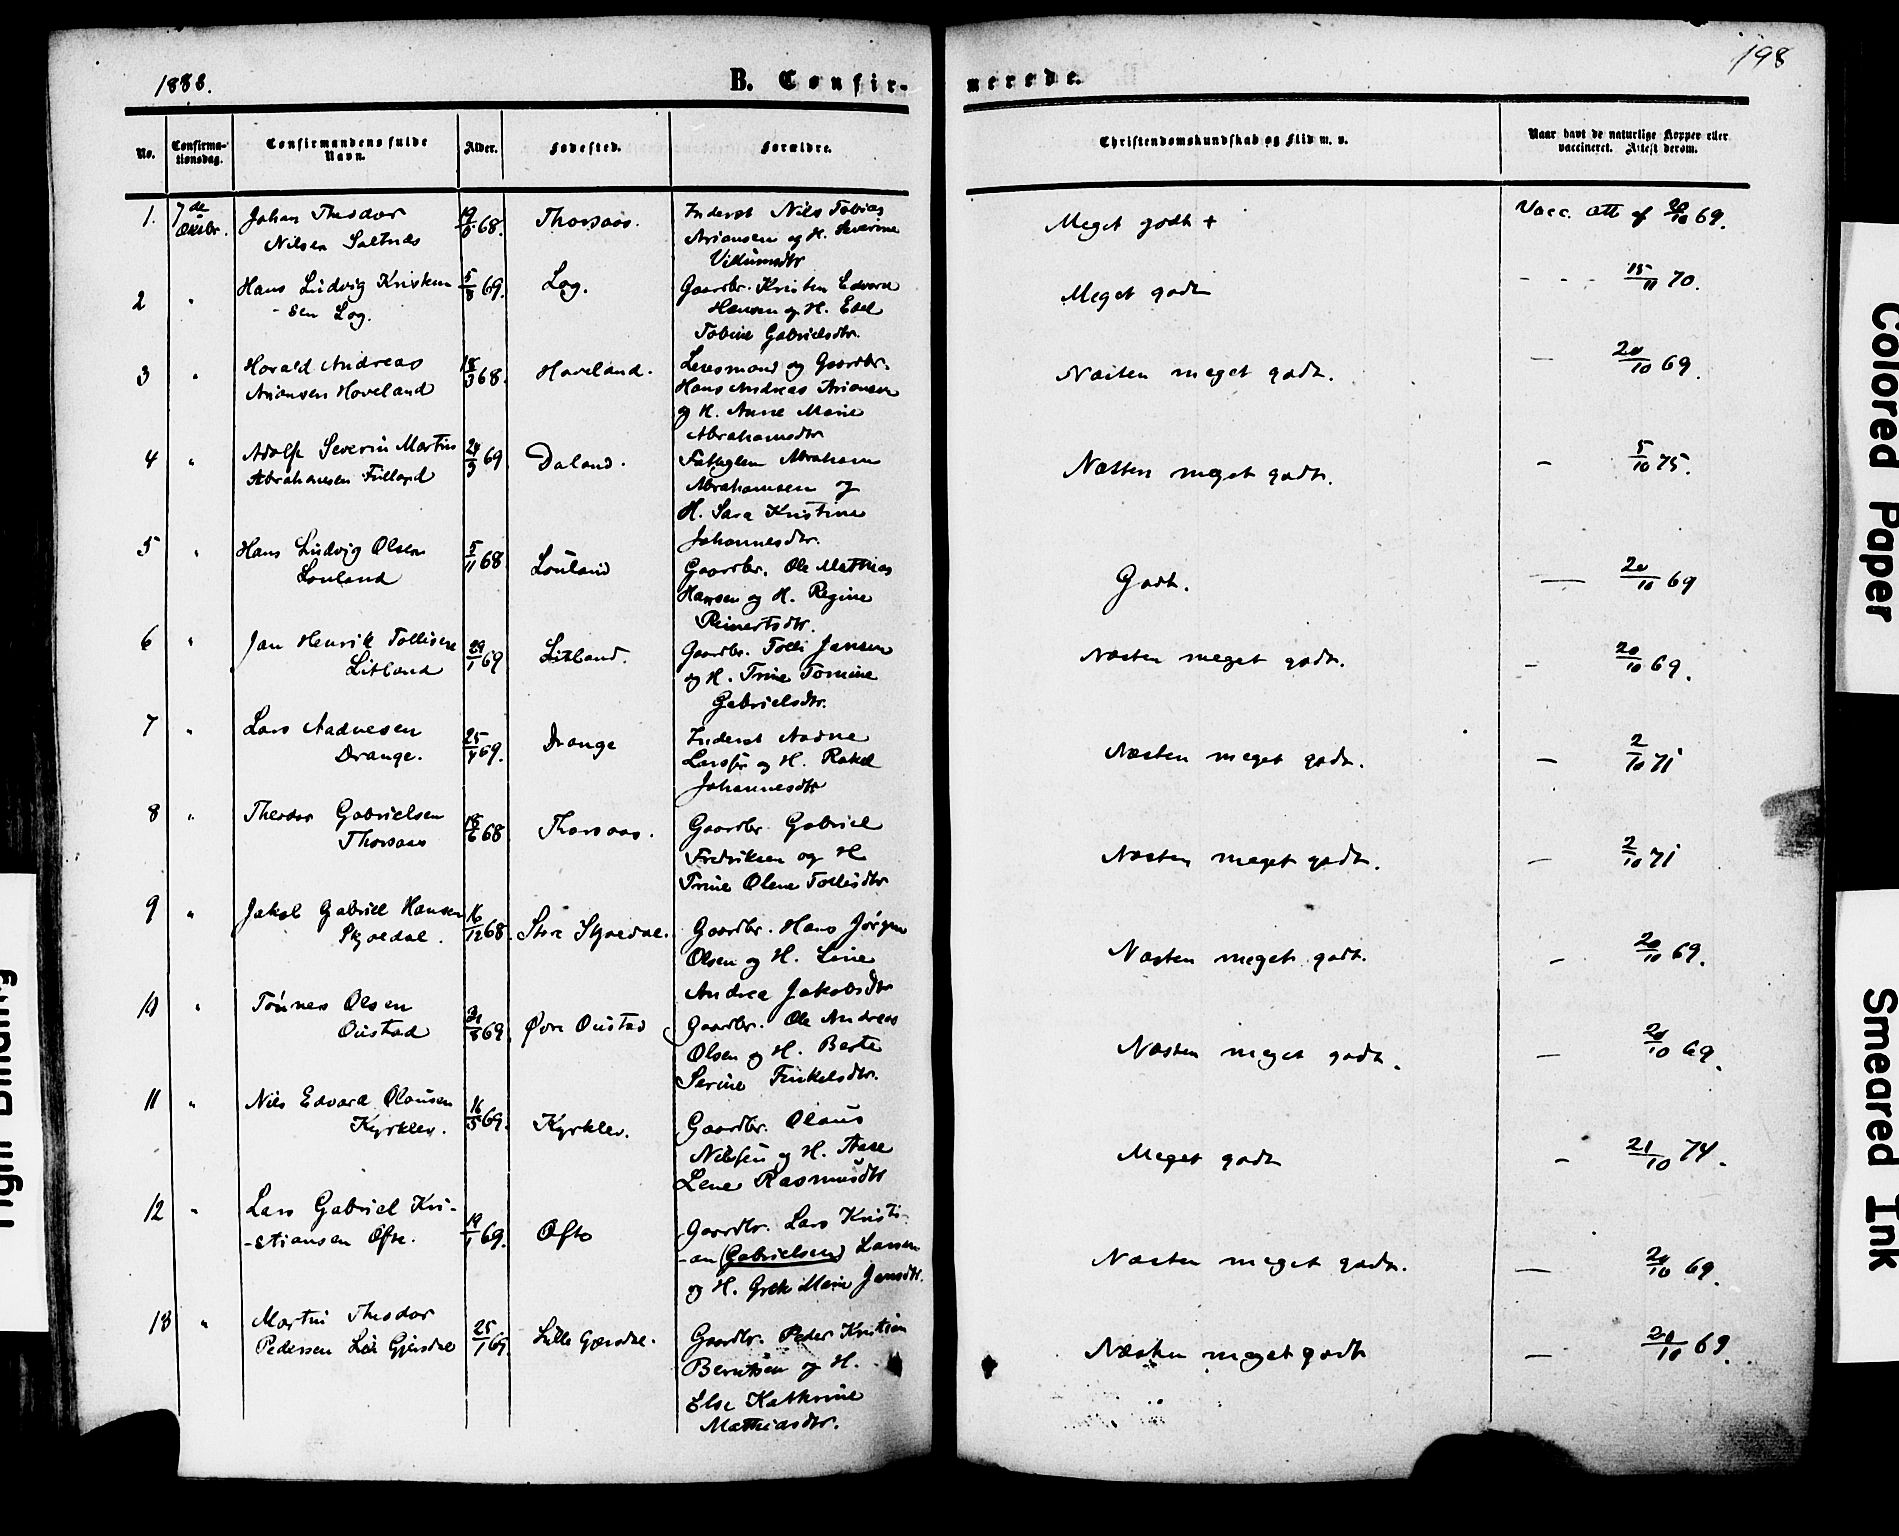 198
1883.
B. Confirmerede.
No.
Confirma-
tionsdag.
Confirmandens fulde
Navn.
Alder.
Fødested.
Forældre.
Christendomskundskab og Flid m. v.
Naar havt de naturlige Kopper eller
vaccineret. Attest derom.
1. 7de Oktbr. Johan Theodor 19/6 68. Thorsaas. Inderst Nils Tobias Meget godt + Vacc. att af 20/10 69.
Nilsen Saltnæs Ariansen og H. Severine
Villumsdtr
2 " Hans Ludvig Kristen 5/8 69. Log. Gaardbr. Kristen Edvard Meget godt - - - 15/11 70.
-sen Log. Hansen og H. Edel
Tobine Gabrielsdtr.
3 " Harald Andreas 18/3 68. Haveland. Lensmand og Gaardbr. Næsten meget godt. — 20/10 69.
Ariansen Haveland Hans Andreas Ariansen
og H. Anne Marie
Abrahamsdtr
4 " Adolf Severin Martin 24/3 69 Daland. Abraham Næsten meget godt. — 5/10 75.
Abrahamsen Abrahamsen og
H. Sara Kristine
Johannesdtr.
5 " Hans Ludvig Olsen 5/11 68 Lonland Gaardbr. Ole Mathias Godt. — 20/10 69
Lonland Hansen og H. Regine
Reinertsdtr.
6 " Jan Henrik Tollisen 29/1 69 Litland. Gaardbr. Tolli Jansen Næsten meget godt. — 20/10 69.
Litland og H. Trine Tomine
Gabrielsdtr.
7 " Lars Aadnesen 25/4 69. Drange Inderst Aadne Næsten meget godt. — 2/10 71
Drange. Larssen og H. Rakel
Johannesdtr
8 " Theodor Gabrielsen 18/6 68 Thorsaas. Gaardbr. Gabriel Næsten meget godt. — 2/10 71
Thorsaas Fredriksen og H
Trine Olene Tollisdtr
9 " Jakob Gabriel Hansen 16/12 68. Store Skjoldal. Gaardbr. Hans Jørgen Næsten meget godt. — 20/10 69.
Skjoldal. Olsen og H. Line
Andrea Jakobsdtr
10 " Tønnes Olsen 69. Øvre Oustad Gaardbr. Ole Andreas Næsten meget godt. — 20/10 69.
Oustad Olsen og H. Berte
Serine Tinkelsdtr.
11 " Nils Edvard Olausen 16/5 69. Kyrklev. Gaardbr. Olaus Meget godt — 21/10 74.
Kyrklev. Nilssen og H. Aase
Lene Rasmusdtr
12 " Lars Gabriel Kri- 19/1 69. Ofte Gaardbr. Lars Kristi- Næsten meget godt. — 20/10 69.
-stiansen Ofte. -an (Gabrielsen) Larsen
og H. Grete Marie Jansdtr.
13 " Martin Theodor 25/1 69. Lille Gjærsdal. Gaardbr. Peder Kristian Næsten meget godt — 20/10 69.
Pedersen Lille Gjersdal Berntsen og H.
Else Kathrine
Mathiasdtr.
Colored Paper
Smeared Ink
Tight Binding